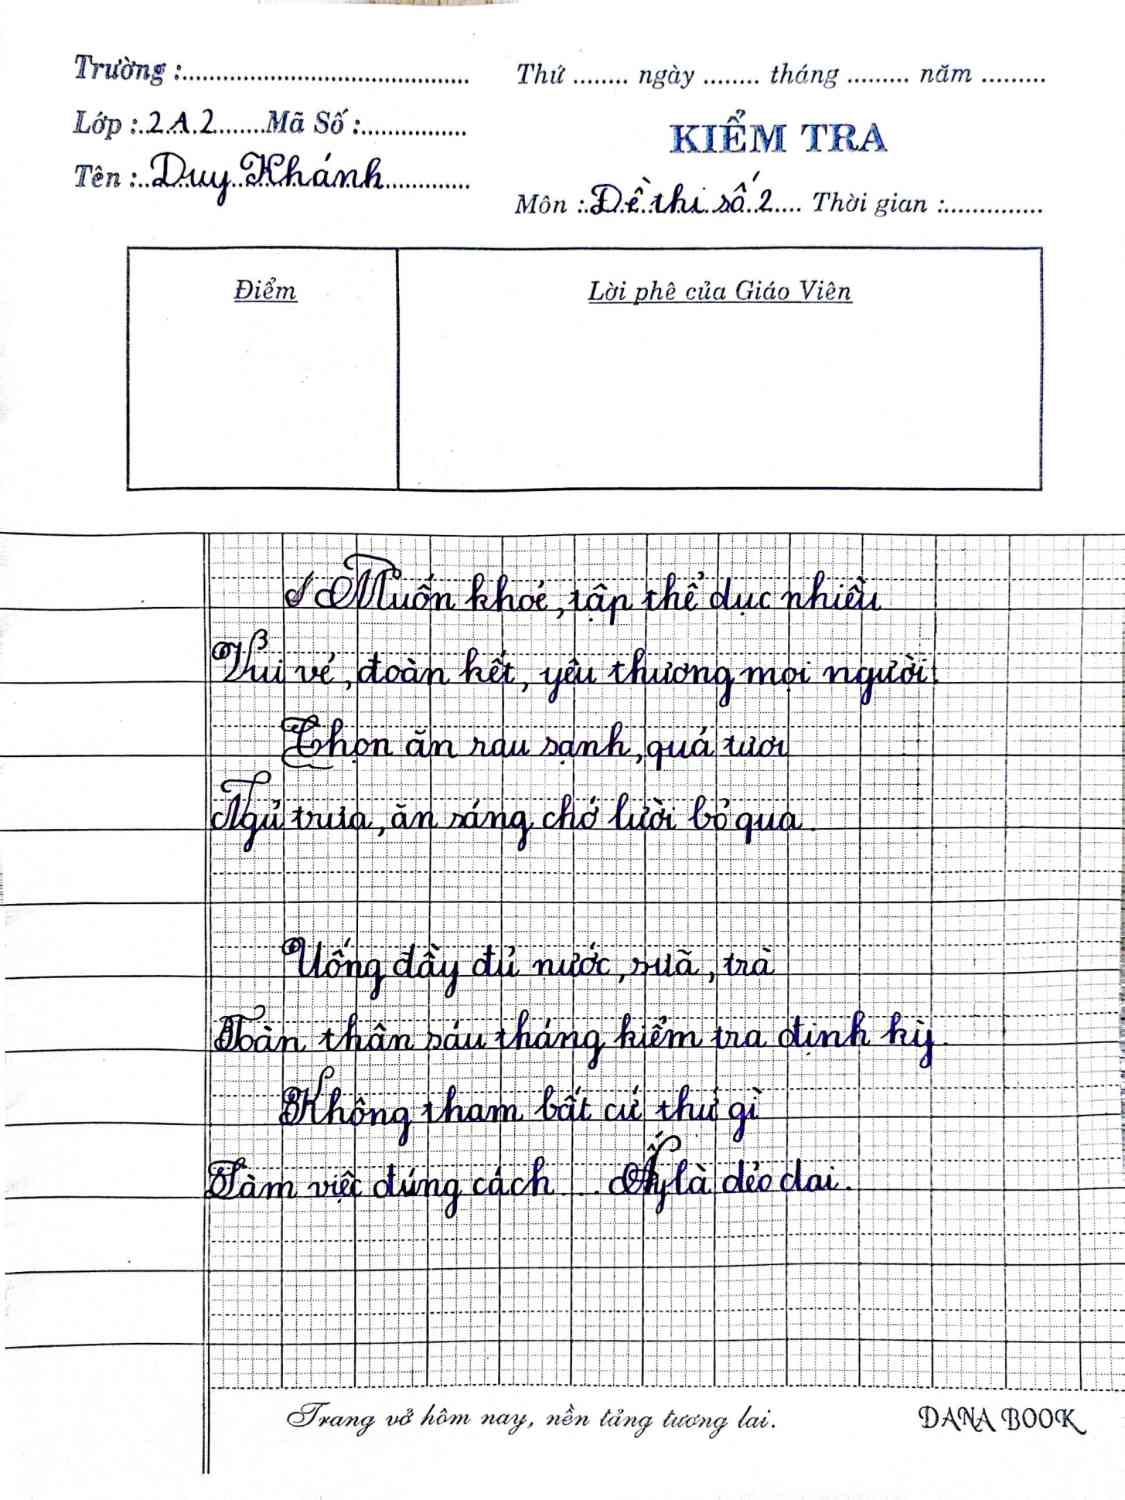 Trường :........................................
Thứ ........ ngày ........ tháng ......... năm .........
Lớp :.2.A.2.......Mã Số :...............
KIỂM TRA
Tên :..Duy.Khánh............
Môn :.Đề.thi.số.2.... Thời gian :..............
Điểm
Lời phê của Giáo Viên
Muốn khoẻ, tập thể dục nhiều
Vui vẻ, đoàn kết, yêu thương mọi người.
Chọn ăn rau sạnh, quả tươi
Ngủ trưa, ăn sáng chớ lười bỏ qua.
Uống đầy đủ nước, sữã, trà
Toàn thân sáu tháng kiểm tra định kỳ.
Không tham bất cứ thứ gì
Làm việc đúng cách ... Ấy là dẻo dai.
Trang vở hôm nay, nền tảng tương lai.
DANA BOOK